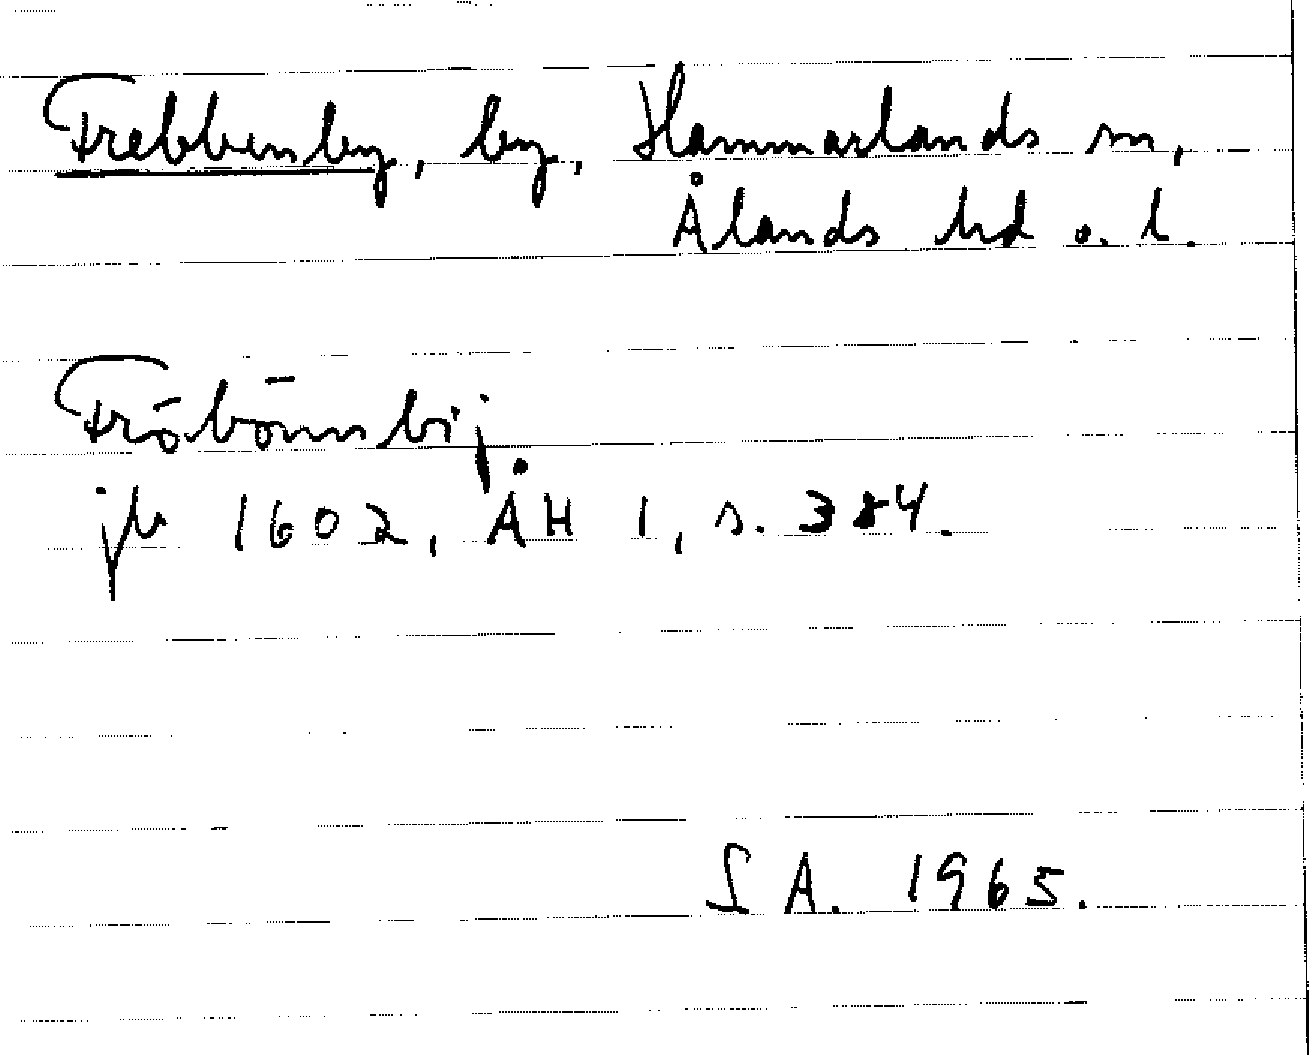 Frebbenby, by, Hammarlands sn,
Ålands hd o. l.
Fröbönnsbÿ
jb 1602, ÅH 1, s. 384.
S A. 1965.